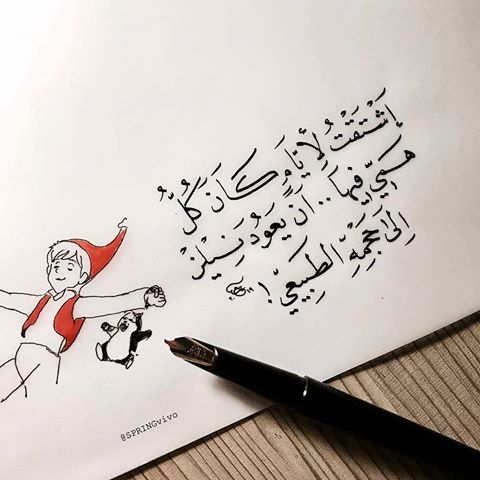 إِشْتَقْتُ لِأَيَّامٍ كَانَ كُلُّ
هَمِّي فِيهَا .. أَنْ يَعُودَ نِيلْز
إِلَىٰ حَجْمِهِ الطَّبِيعِيِّ !
@SPRINGvivo